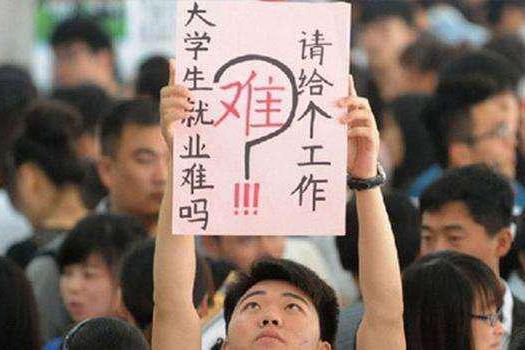 大学生就业难吗
难
? !!!
请给个工作